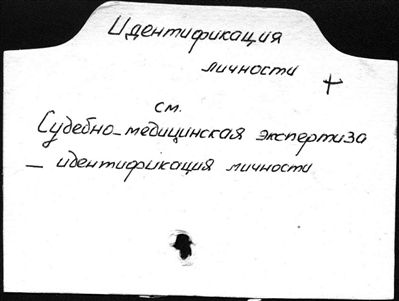 Идентификация
личности +
см.
Судебно-медицинская экспертиза
– идентификация личности